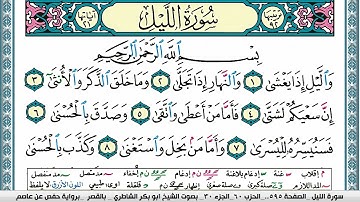 سُورَةُ اللَّيْلِ
آياتها ٢١
بِسْمِ ٱللَّهِ ٱلرَّحْمَٰنِ ٱلرَّحِيمِ
وَٱلَّيْلِ إِذَا يَغْشَىٰ ١ وَٱلنَّهَارِ إِذَا تَجَلَّىٰ ٢ وَمَا خَلَقَ ٱلذَّكَرَ وَٱلْأُنثَىٰ ٣
إِنَّ سَعْيَكُمْ لَشَتَّىٰ ٤ فَأَمَّا مَنْ أَعْطَىٰ وَٱتَّقَىٰ ٥ وَصَدَّقَ بِٱلْحُسْنَىٰ ٦
فَسَنُيَسِّرُهُۥ لِلْيُسْرَىٰ ٧ وَأَمَّا مَنۢ بَخِلَ وَٱسْتَغْنَىٰ ٨ وَكَذَّبَ بِٱلْحُسْنَىٰ
سورة الليل الصفحة ٥٩٥ الحزب ٦٠ الجزء ٣٠ بصوت الشيخ ابو بكر الشاطري بالقصر برواية حفص عن عاصم